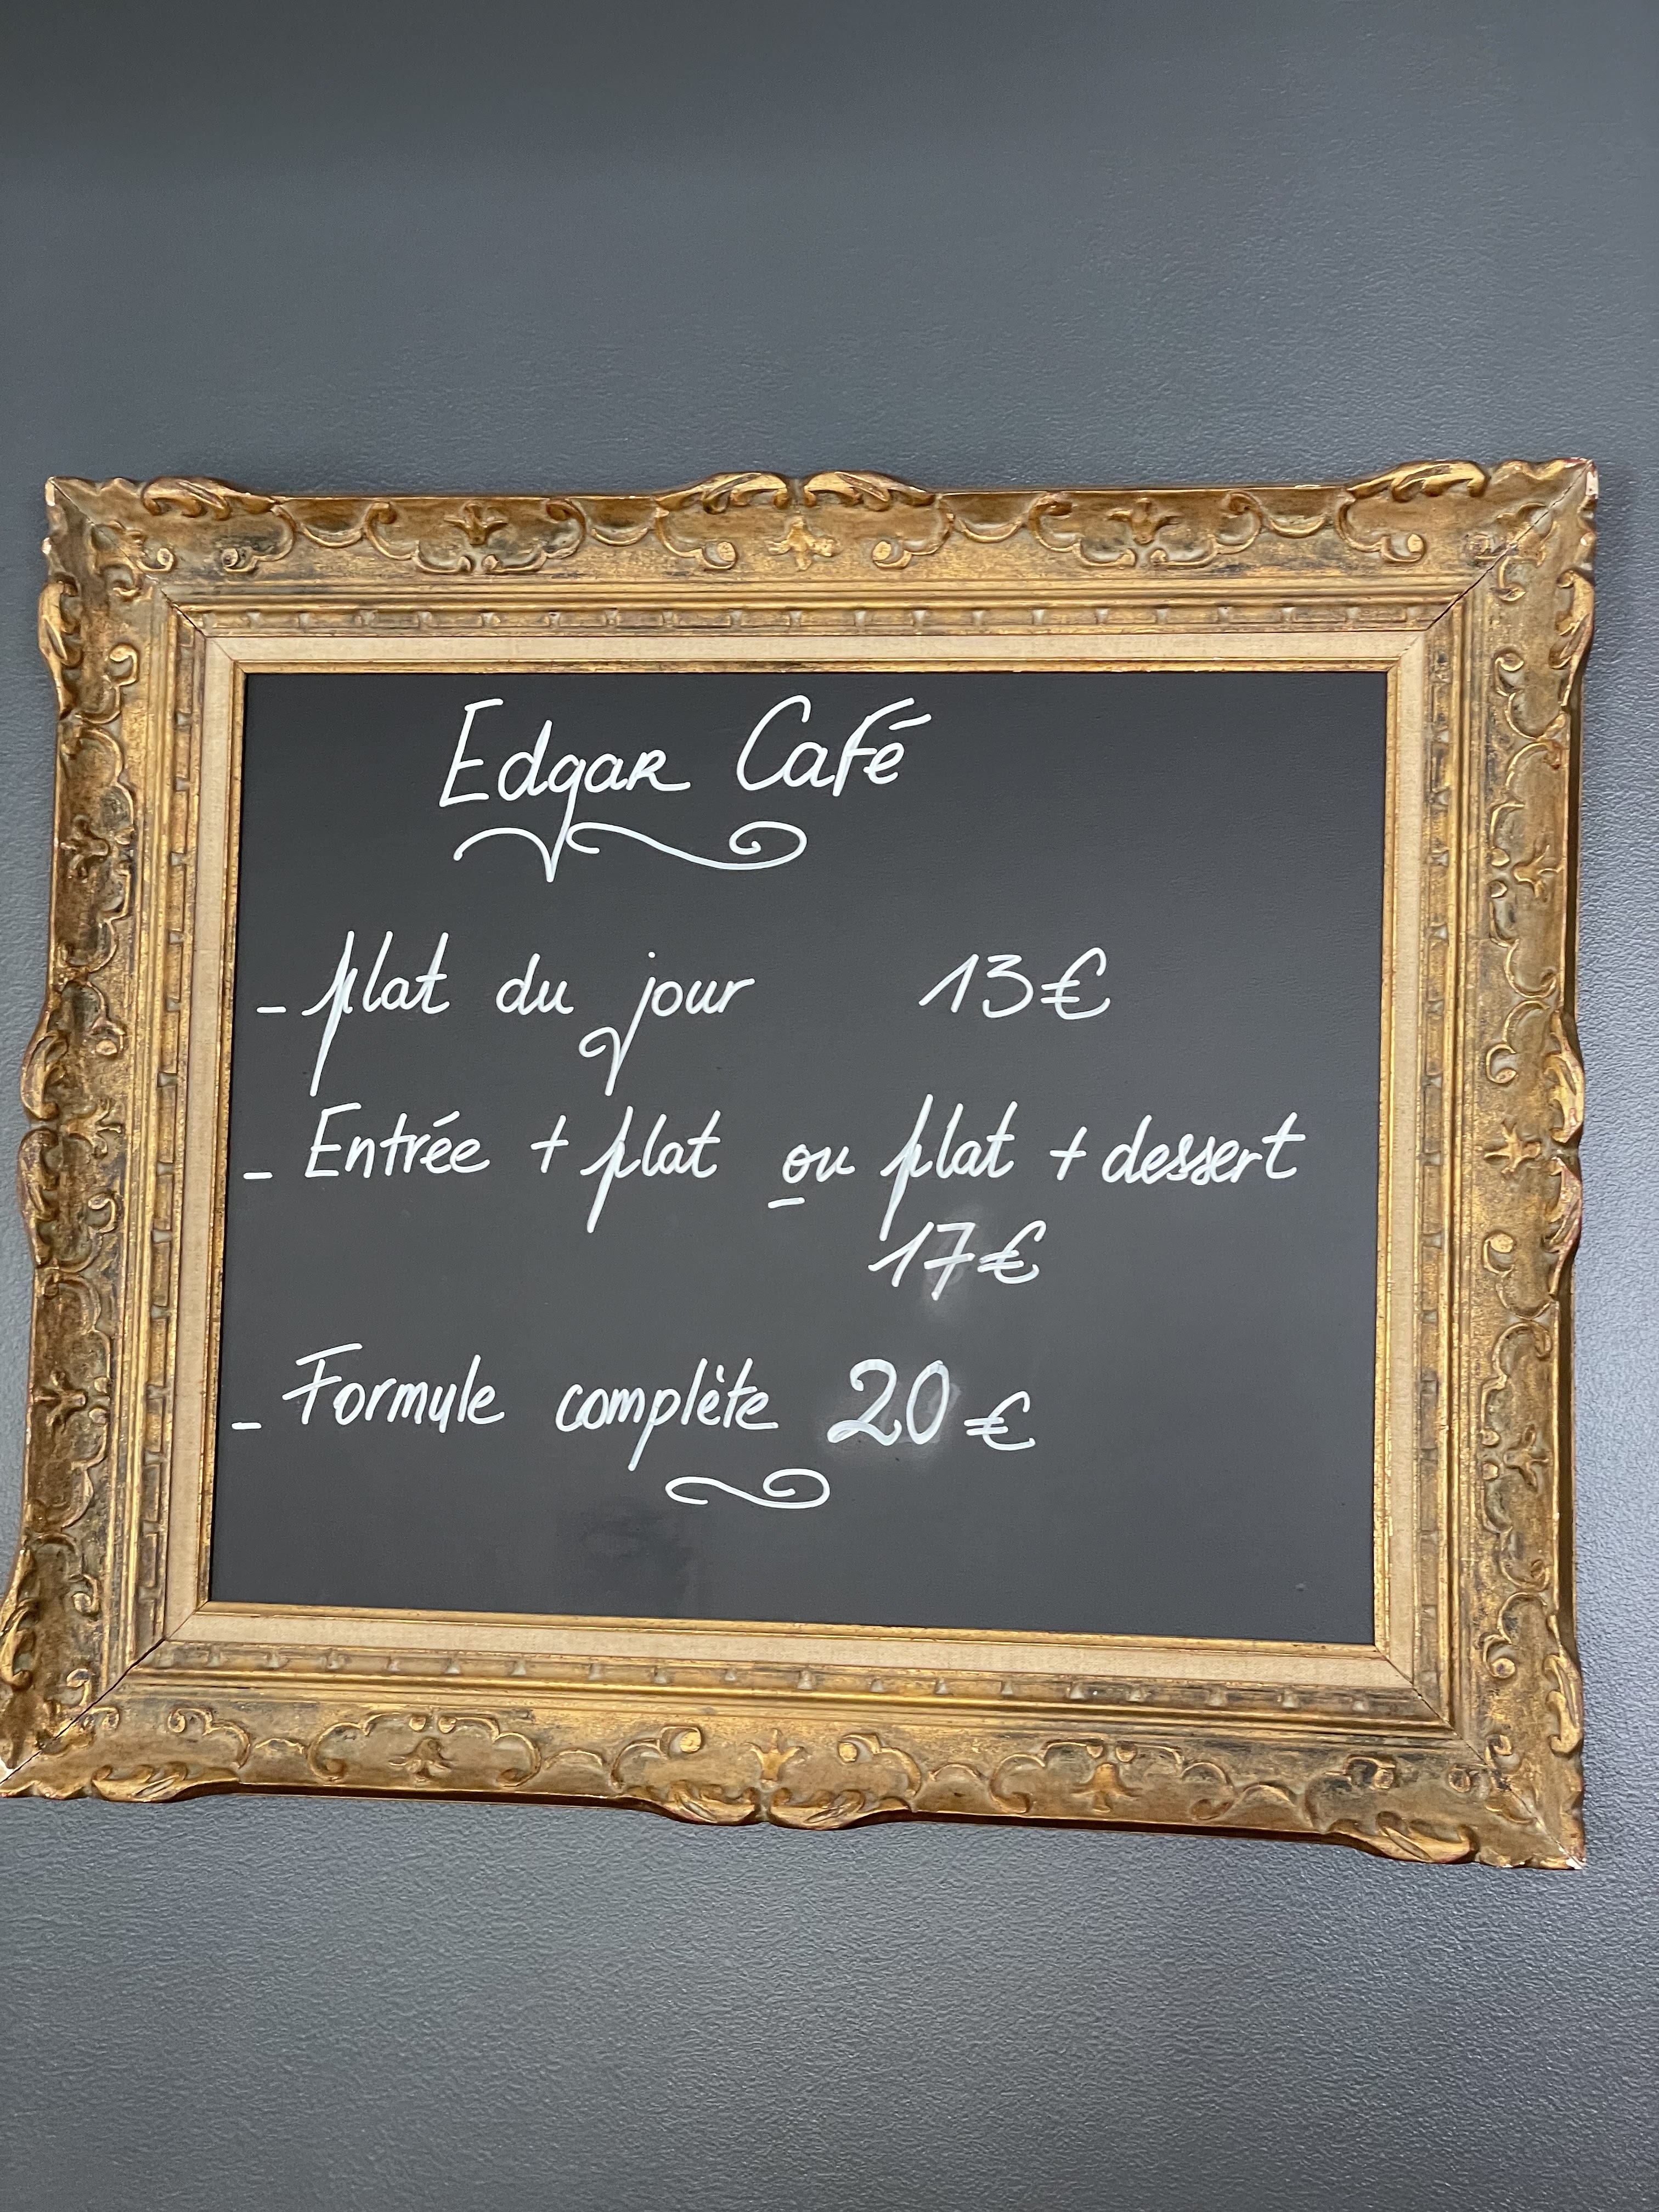 Edgar Café
- plat du jour 13€
- Entrée + plat ou plat + dessert
17€
- Formule complète 20€